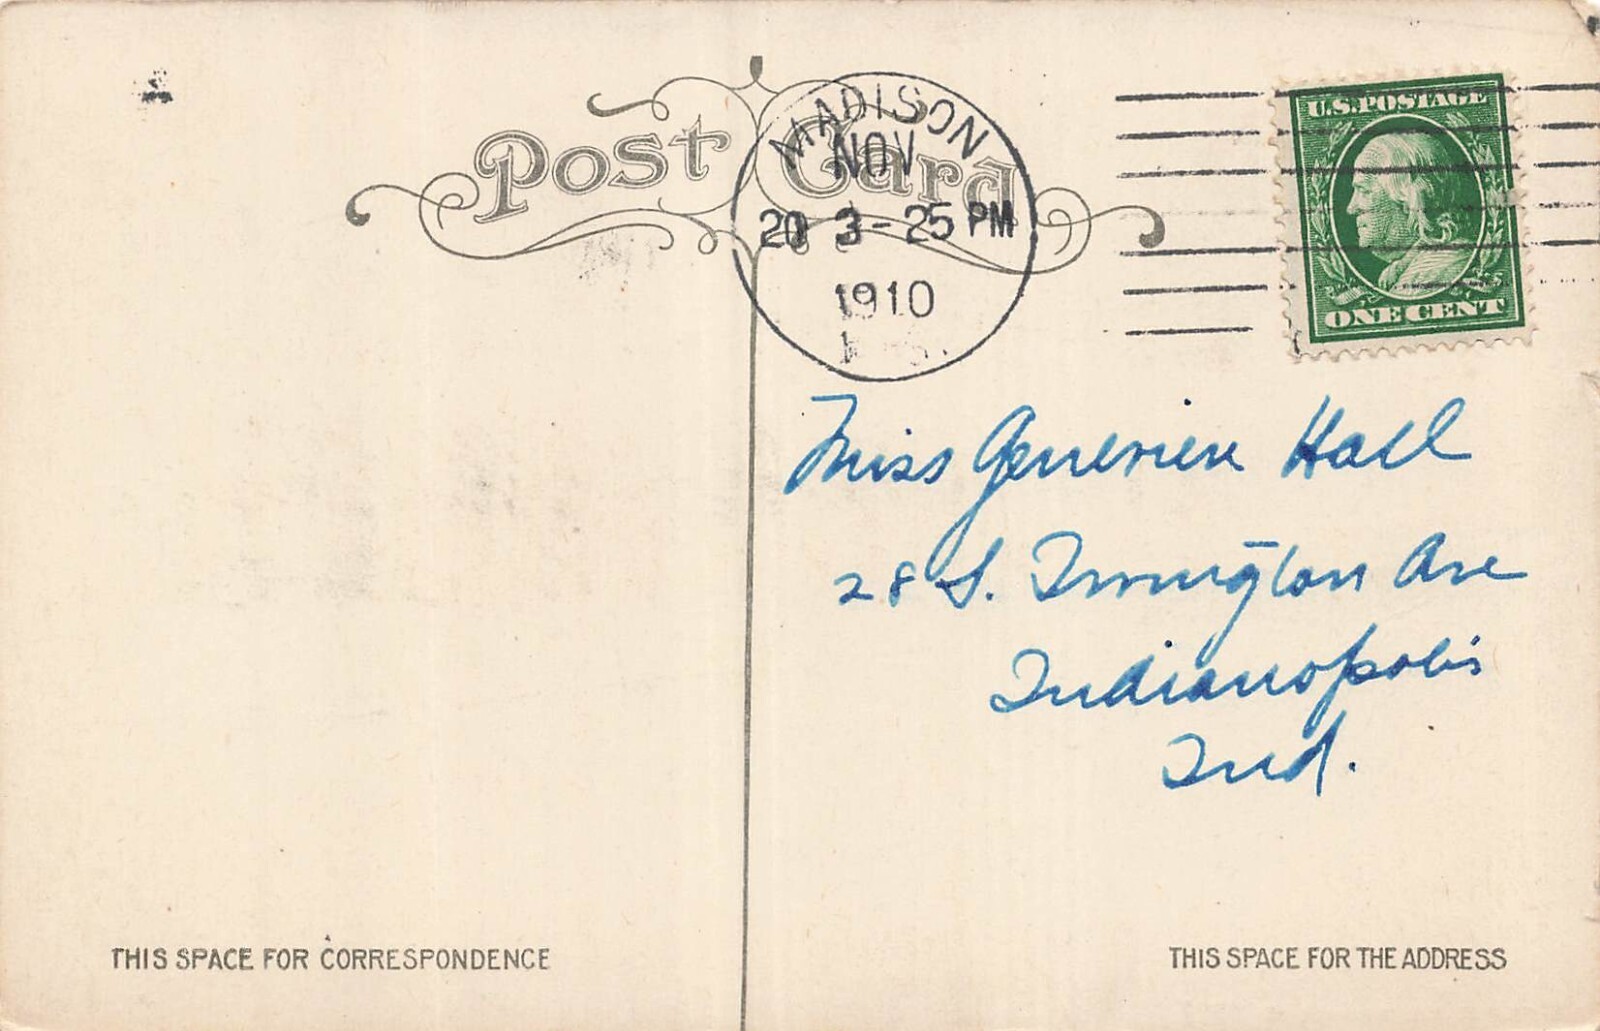 Post Card
MADISON
NOV
20 3-25 PM
1910
U.S. POSTAGE
ONE CENT
Miss Genevieve Hall
28 S. Irvington Ave
Indianapolis
Ind.
THIS SPACE FOR CORRESPONDENCE
THIS SPACE FOR THE ADDRESS